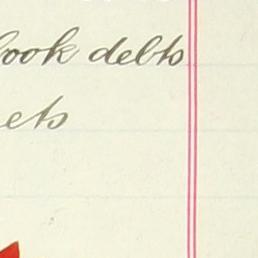 book debts
ets